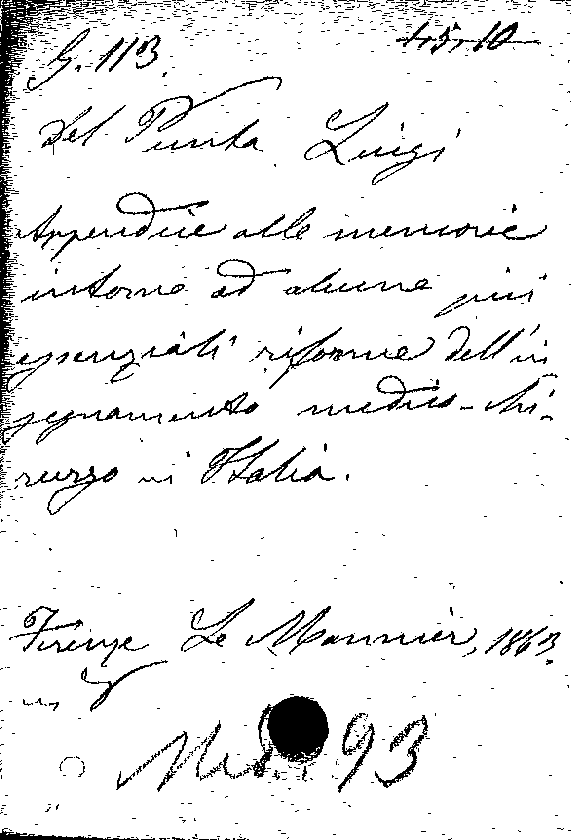 G. 113. 45.10
Del Punta Luigi
Appendice alle memorie
intorno ad alcune più
essenziali riforme dell'in
segnamento medico-chi-
rurgo in Italia.
Firenze Le Monnier, 1863.
in 8
Med. 93